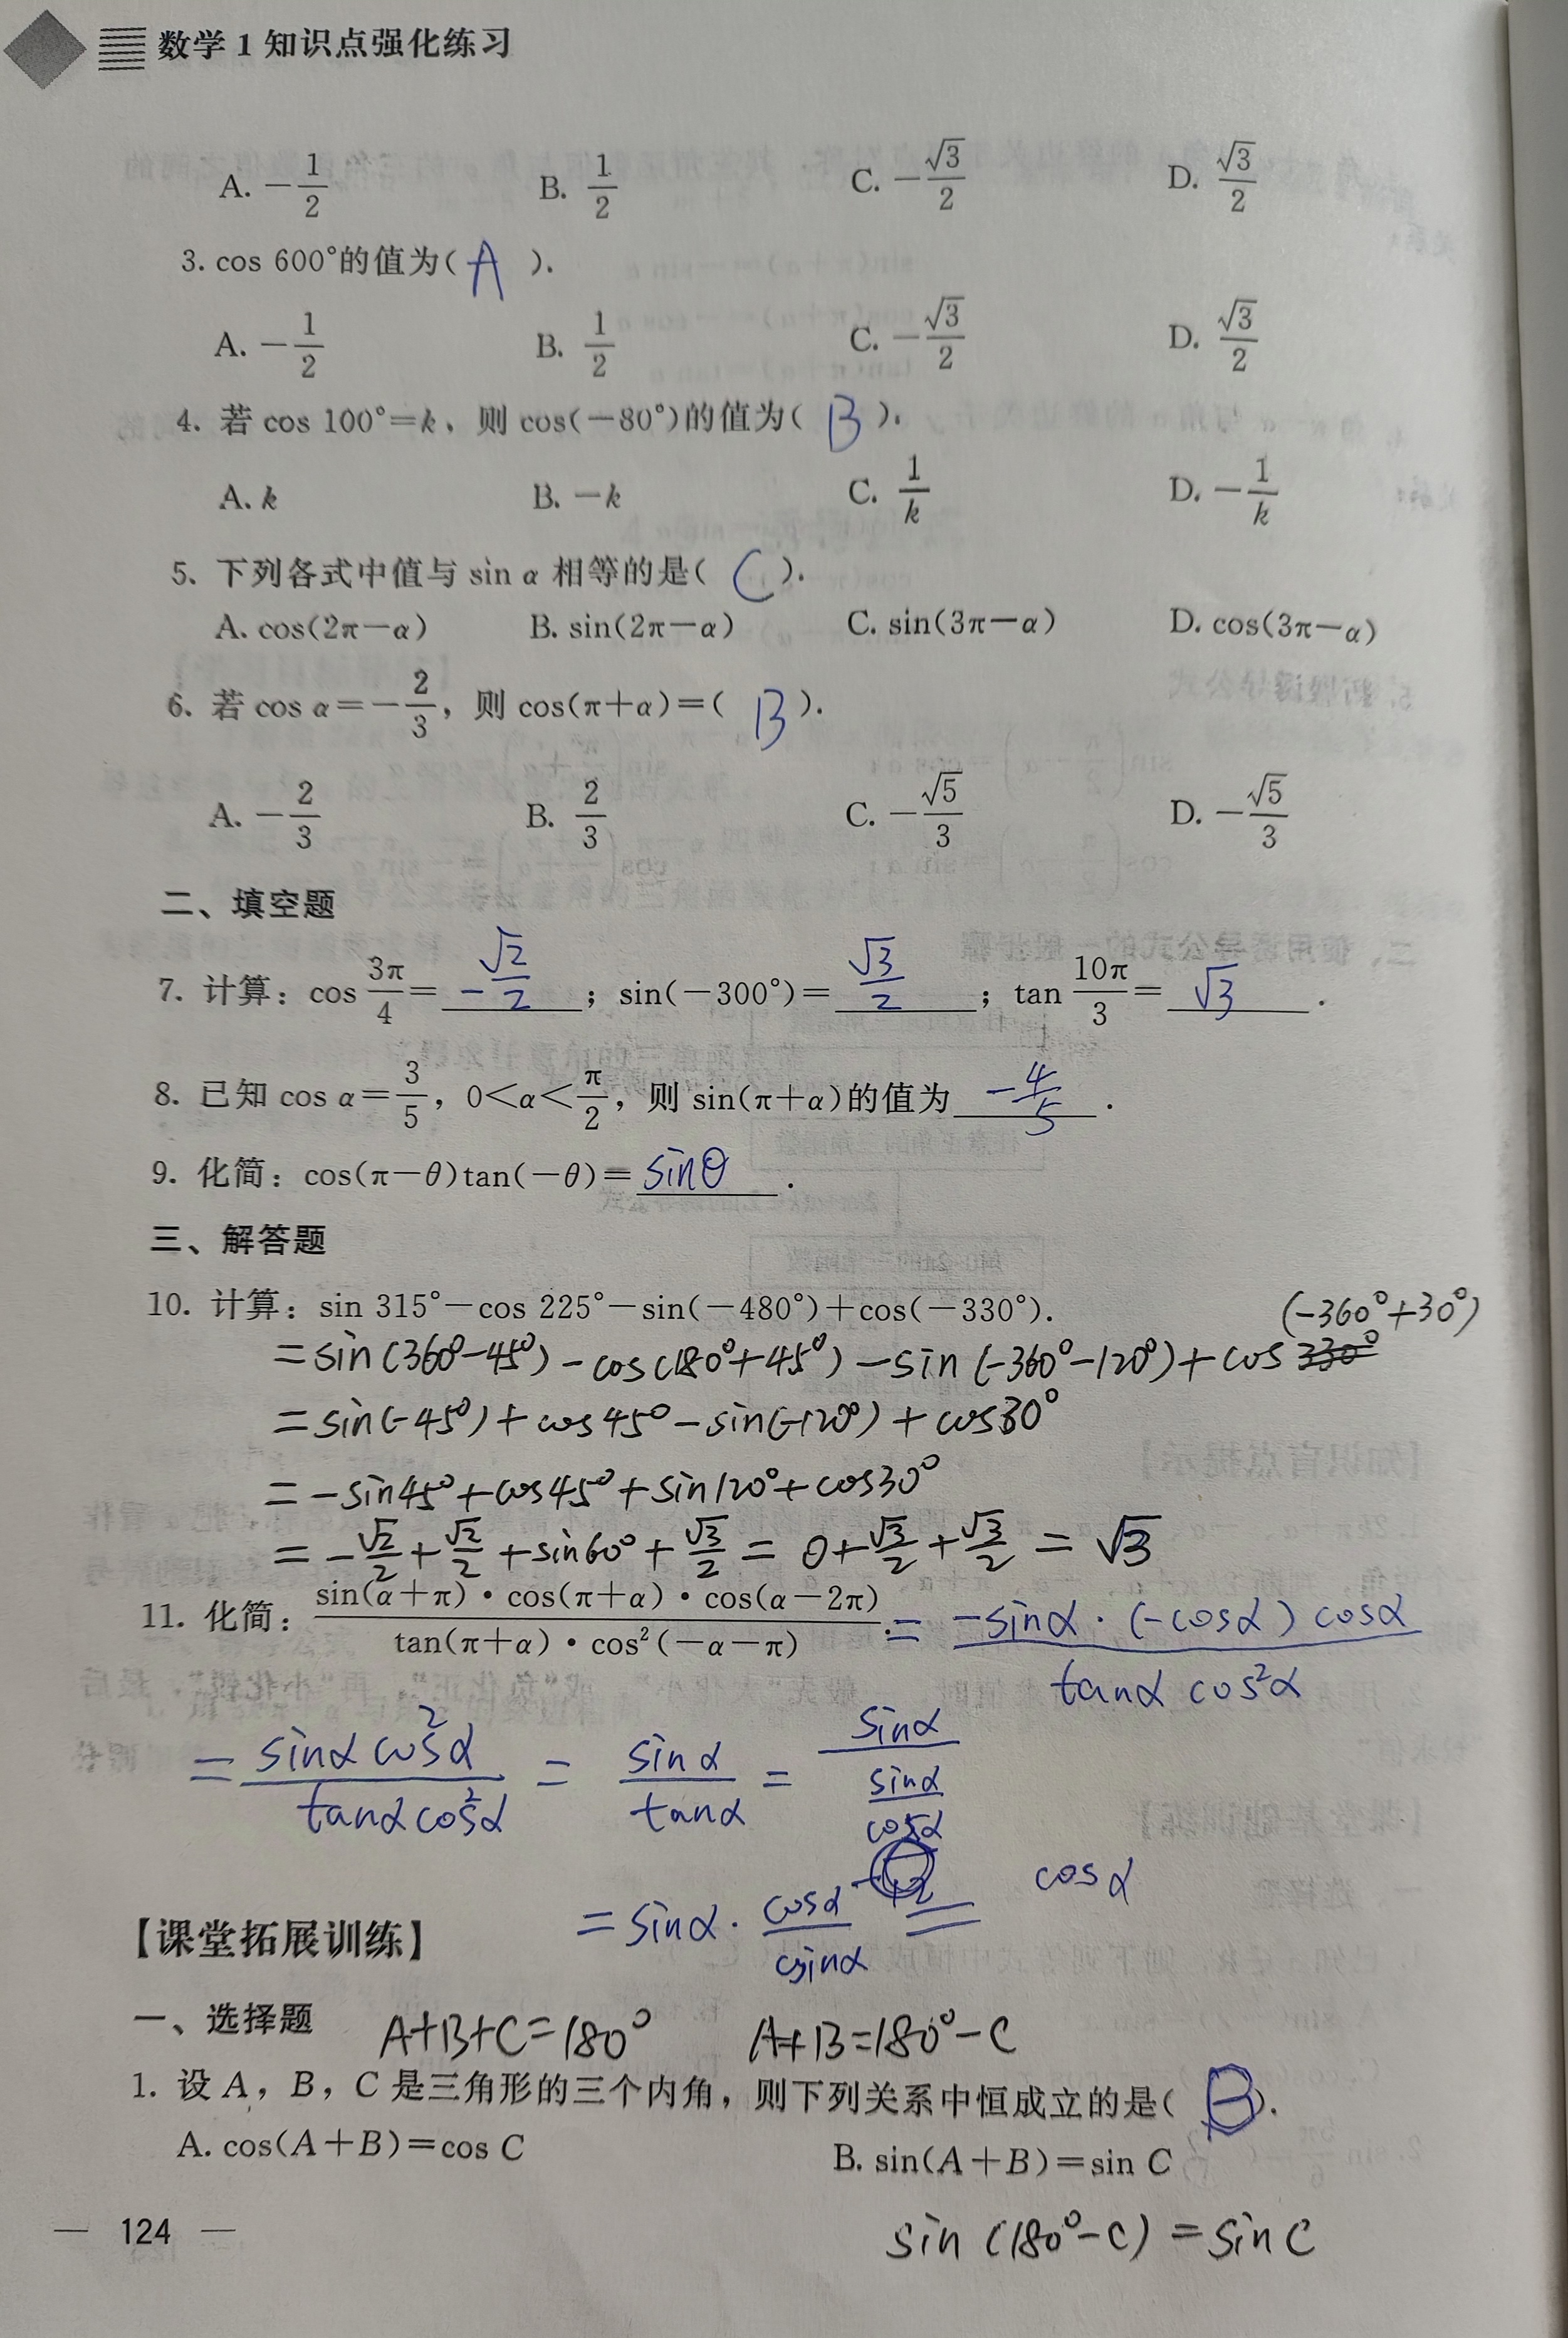 数学1知识点强化练习
A. −1/2 B. 1/2 C. −√3/2 D. √3/2
3. cos 600°的值为( A ).
A. −1/2 B. 1/2 C. −√3/2 D. √3/2
4. 若 cos 100°=k、则 cos(−80°)的值为( B ).
A. k B. −k C. 1/k D. −1/k
5. 下列各式中值与 sin α 相等的是( C ).
A. cos(2π−α) B. sin(2π−α) C. sin(3π−α) D. cos(3π−α)
6. 若 cos α=−2/3，则 cos(π+α)=( B ).
A. −2/3 B. 2/3 C. −√5/3 D. −√5/3
二、填空题
7. 计算：cos 3π/4= −√2/2 ；sin(−300°)= √3/2 ；tan 10π/3= √3 .
8. 已知 cos α=3/5，0<α<π/2，则 sin(π+α)的值为 −4/5 .
9. 化简：cos(π−θ)tan(−θ)= sinθ .
三、解答题
10. 计算：sin 315°−cos 225°−sin(−480°)+cos(−330°).
(−360°+30°)
=sin(360°−45°)−cos(180°+45°)−sin(−360°−120°)+cos 330°
=sin(−45°)+cos45°−sin(−120°)+cos30°
=−sin45°+cos45°+sin120°+cos30°
=−√2/2+√2/2+sin60°+√3/2=0+√3/2+√3/2=√3
11. 化简：sin(α+π)·cos(π+α)·cos(α−2π)/tan(π+α)·cos²(−α−π).= −sinα·(−cosα)cosα/tanα cos²α
= sinα cos²α/tanα cos²α = sinα/tanα = sinα/(sinα/cosα)
=sinα·cosα/sinα = cosα
【课堂拓展训练】
一、选择题 A+B+C=180° A+B=180°−C
1. 设 A，B，C 是三角形的三个内角，则下列关系中恒成立的是( B ).
A. cos(A+B)=cos C B. sin(A+B)=sin C
— 124 —
sin(180°−C)=sinC